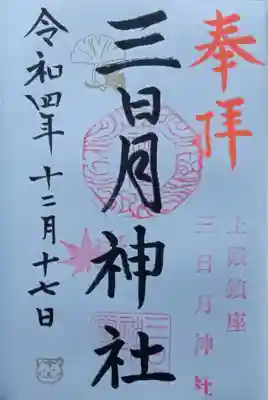 奉拝
上隈鎮座
三日月神社
三日月神社
令和四年十二月十七日